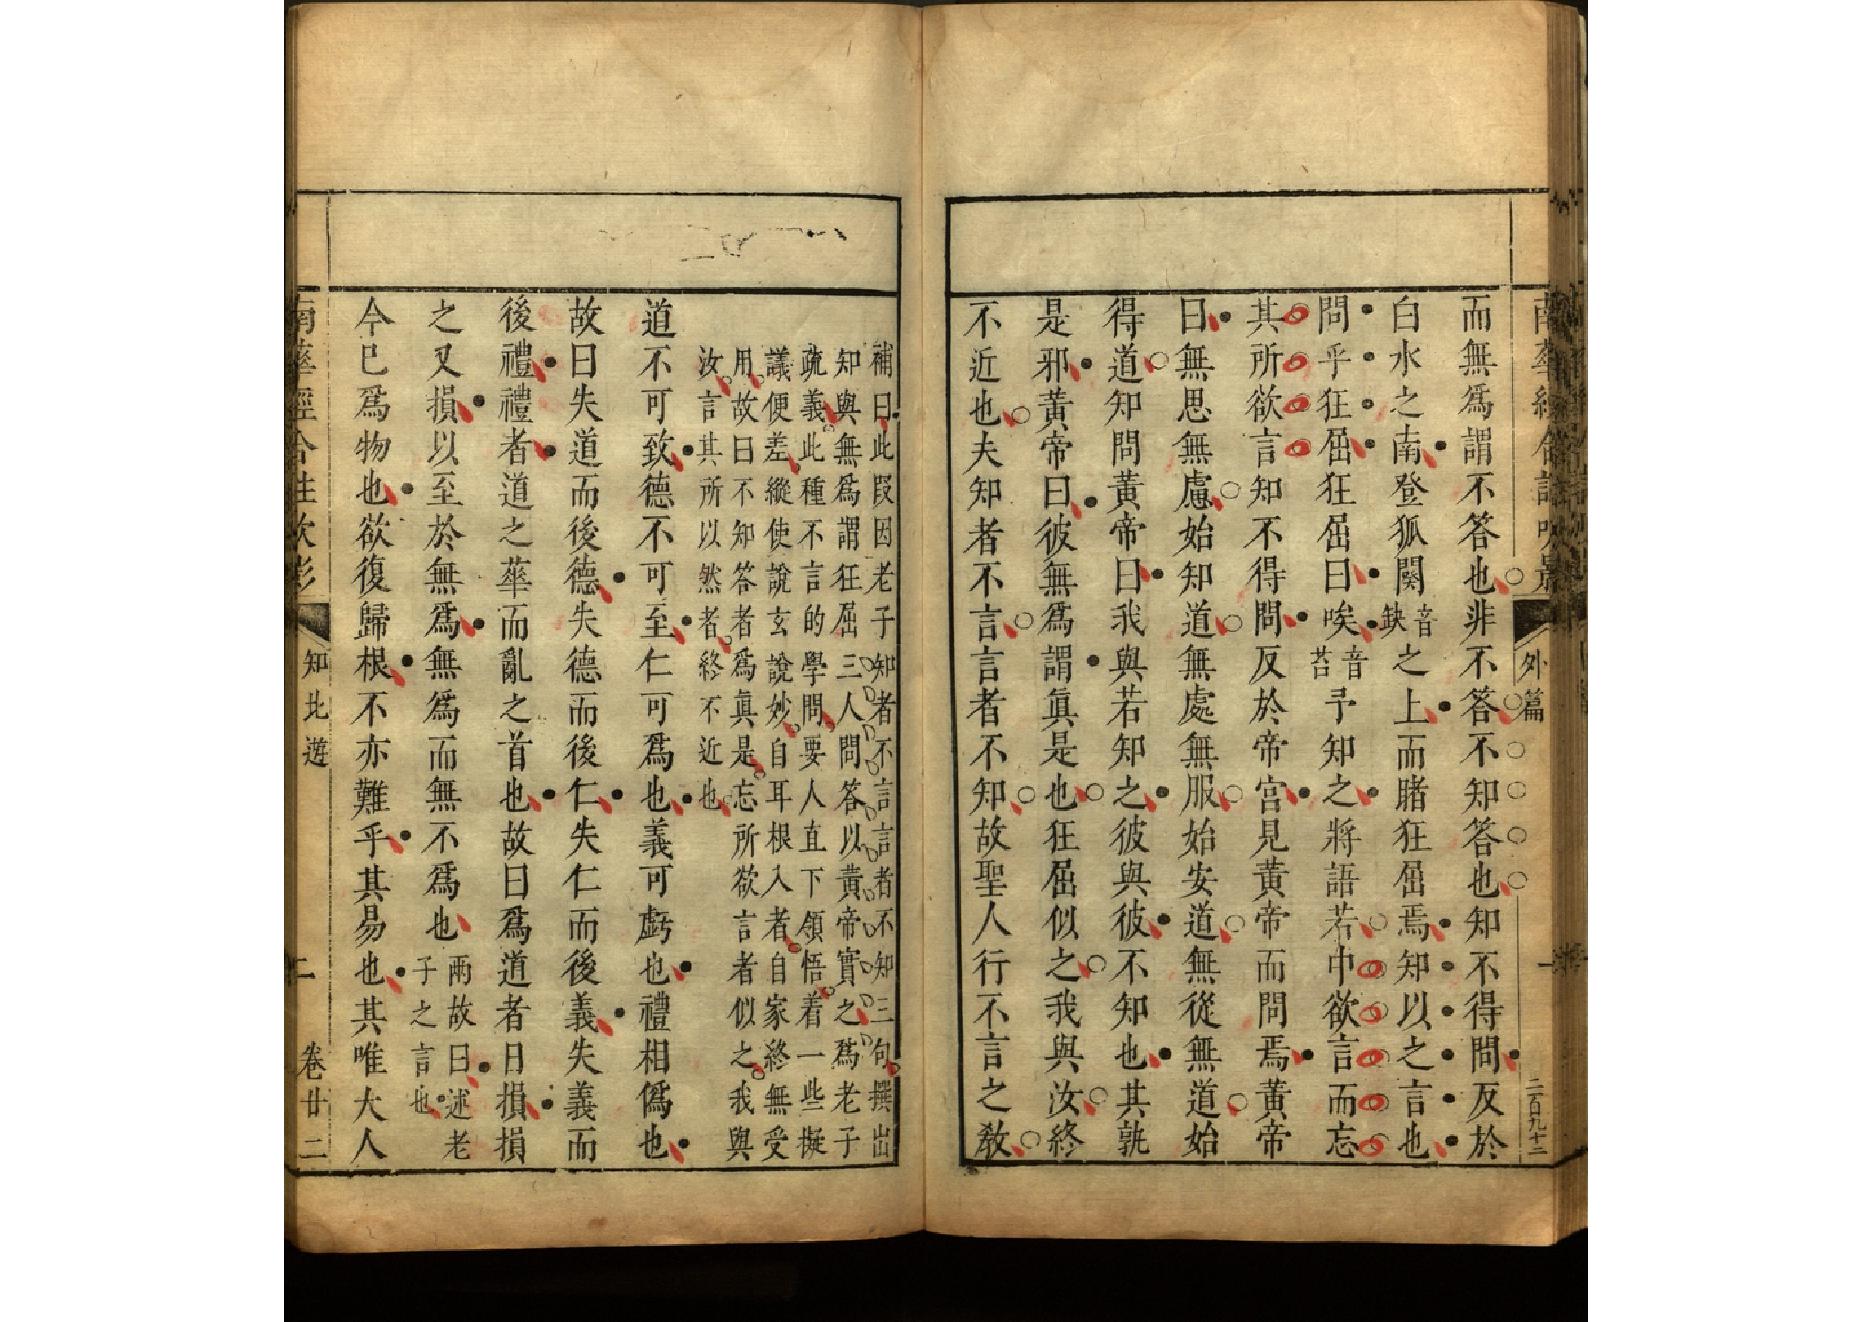 南華經合註吹影
外篇
一
二百九十二
而無爲謂不答也非不答不知答也知不得問反於
白水之南登狐闋音缺之上而睹狂屈焉知以之言也
問乎狂屈狂屈曰唉音苔予知之將語若中欲言而忘
其所欲言知不得問反於帝宮見黃帝而問焉黃帝
曰無思無慮始知道無處無服始安道無從無道始
得道知問黃帝曰我與若知之彼與彼不知也其孰
是邪黃帝曰彼無爲謂眞是也狂屈似之我與汝終
不近也夫知者不言言者不知故聖人行不言之敎
補曰此段因老子知者不言言者不知三句撰出
知與無爲謂狂屈三人問答以黃帝實之爲老子
疏義此種不言的學問要人直下領悟着一些擬
議便差縱使說玄說妙自耳根入者自家終無受
用故曰不知答者爲眞是忘所欲言者似之我與
汝言其所以然者終不近也
道不可致德不可至仁可爲也義可虧也禮相僞也
故曰失道而後德失德而後仁失仁而後義失義而
後禮禮者道之華而亂之首也故曰爲道者日損損
之又損以至於無爲無爲而無不爲也兩故曰述老子之言也
今已爲物也欲復歸根不亦難乎其易也其唯大人
南華經合註吹影
知北遊
二
卷廿二